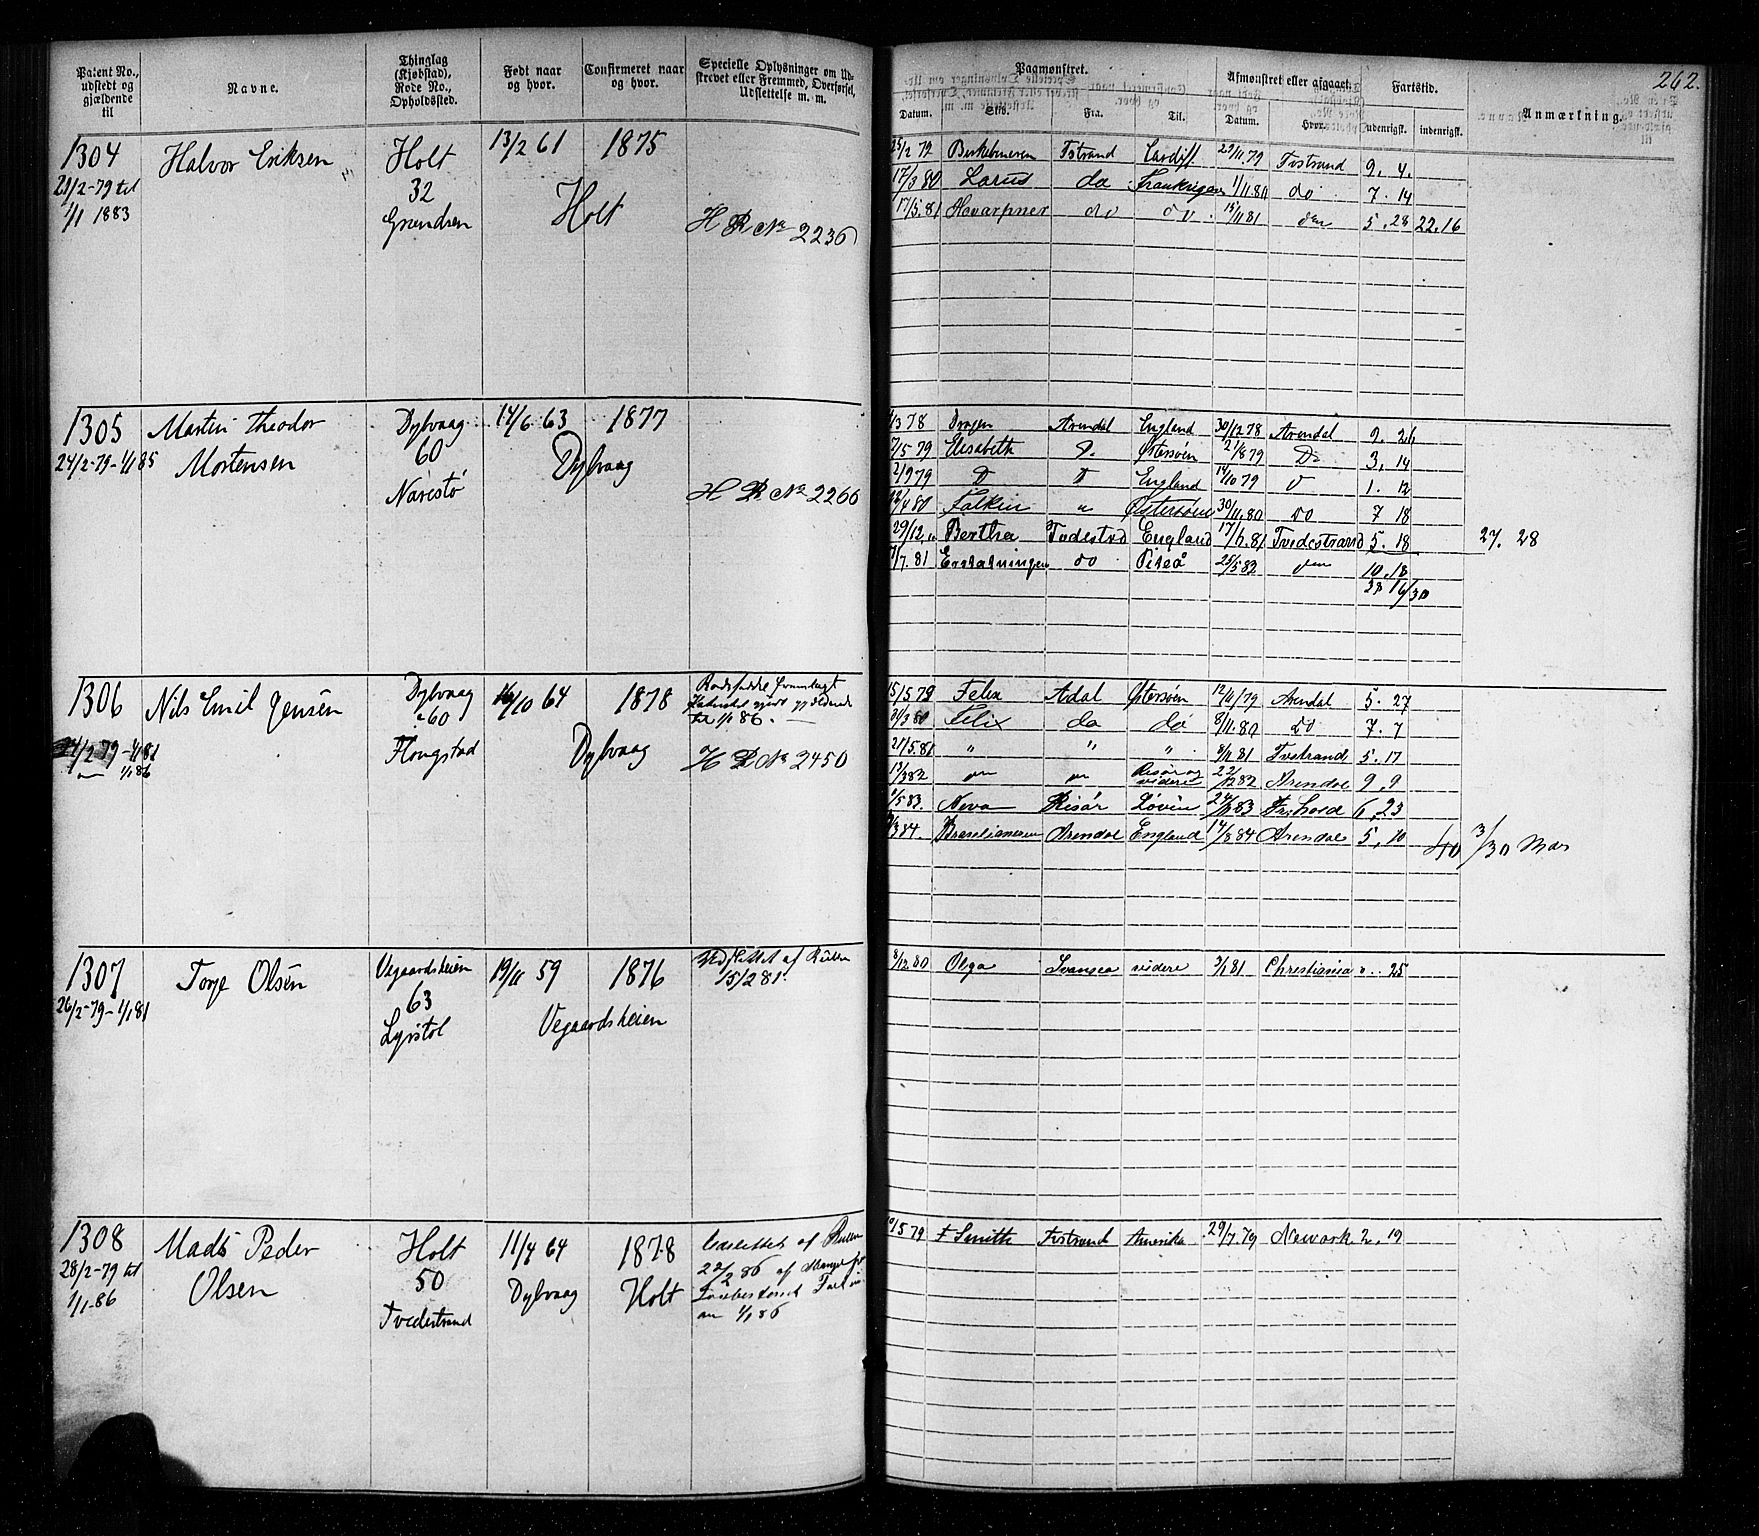 262.
Patent No., udstedt og gjældende til
Navne.
Thinglag (Kjøbstad), Rode No., Opholdssted.
Født naar og hvor.
Confirmeret naar og hvor.
Specielle Oplysninger om Udstrevet eller Fremmed, Overførsel, Udslettelse m. m.
Paamønstret.
Datum. Skib. Fra. Til.
Afmønstret eller afgaaet.
Datum. Hvor.
Fartstid.
udenrigsk. indenrigsk.
Anmærkning.
1304 Halvor Eriksen Holt 13/2 61 1875
21/2-79 til 32
1/1 1883 Holt
H R No 2236
25/2 79 Birkebeineren Tstrand Cardiff 29/11 79 Tvstrand 9. 4.
17/3 80 Larus do Frankrigen 1/11 80 do 7. 14
17/5.81 do do 15/11 81 5.28 22.16
1305 Martin Theodor Dybvaag 14/6 63 1877
24/2-79-1/1 85 Mortensen 60 Dybvaag
Narestø H R No 2266
/3 78 Arendal England 30/12 78 Arendal 9. 26
7/5 79 Elisabeth Østersøen 21/8 79 Do 3. 14
2/9 79 D D England 14/10 79 D 1. 12
/4 80 Falken " Østersøen 30/11.80 Do 7 18
29/12 " Bertha Tvdestrd England 17/6.81 Tvedestrand 5. 18
27. 28
/7. 81 do Piteå 25/5 82 10.18
16/30
1306 Nils Emil Jensen Dybvaag 16/10 64 1878
60
24/2 79-1/1 81 Flougstad Dybvaag H R No 2450
1/1 86
til 1/1 86.
15/5 79 Felix Adal Østersøen 12/11/79 Arendal 5. 27
31/3 80 Felix do do 8/11.80 Do 7. 7
21/5.81 " " " 8/11 81 Tvstrand 5. 17
13/3 82 Risør og videre 22/12 82 Arendal 9. 9
/5 83. Neva Risør 24/11 83 6. 23
/3 84. Brasilianeren Arendal England 14/8 84 Arendal 5. 10
40 3/30 Mdr
1307 Torje Olsen Vegaardsheien 19/11 59 1876 Udslettet af Rullen
26/2-79-1/1 81 63 15/2 81.
Lyvstøl Vegaardsheien
8/12 80 Olga Svansea videre 3/1 81 Christiania ". 25
1308 Mads Peder Holt 11/4 64 1878 Udslettet af Rullen
28/2-79 til Olsen 50 Dybvaag Holt 22/2 86 af Mangel
1/1-86 Tvedestrand 1/1 86
/5 79 F Smith Tvstrand Amerika 29/7.79 Newark 2. 19